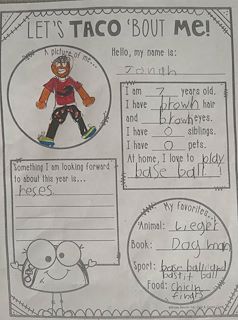 LET'S TACO 'BOUT ME!
A picture of me...
Hello, my name is:
Jonah
I am 7 years old.
I have brown hair
and brown eyes.
I have 0 siblings.
I have 0 pets.
At home, I love to play
base ball !
Something I am looking forward
to about this year is...
reses
My favorites...
Animal: Lieger
Book: Dog man
Sport: base ball and
bastit ball
Food: chicin
fingrs